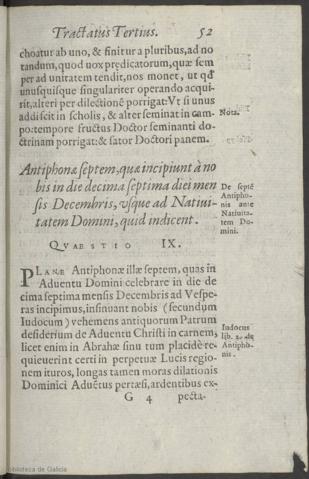 Tractatus Tertius. 52
choatur ab uno, & finitur a pluribus, ad no
tandum, quod uox prędicatorum, quæ sem
per ad unitatem tendit, nos monet, ut qđ
unusquisque singulariter operando acqui-
rit, alteri per dilectionē porrigat: Vt si unus
addiscit in scholis, & alter seminat in cam-
po: tempore fructus Doctor seminanti do-
ctrinam porrigat: & sator Doctori panem.
Nota.
Antiphonæ septem, quæ incipiunt à no
bis in die decima septima diei men
sis Decembris, vsque ad Natiui-
tatem Domini, quid indicent.
De septē
Antipho-
nis ante
Natiuita-
tem Do-
mini.
QVAESTIO IX.
PLANÆ Antiphonæ illæ septem, quas in
Aduentu Domini celebrare in die de
cima septima mensis Decembris ad Vespe-
ras incipimus, insinuant nobis (secundum
Iudocum) vehemens antiquorum Patrum
desiderium de Aduentu Christi in carnem,
licet enim in Abrahæ sinu tum placidè re-
quieuerint certi in perpetuæ Lucis regio-
nem ituros, longas tamen moras dilationis
Dominici Aduētus pertæsi, ardentibus ex-
Iudocus
lib. 2. de
Antipho-
nis.
G 4 pecta-
Biblioteca de Galicia